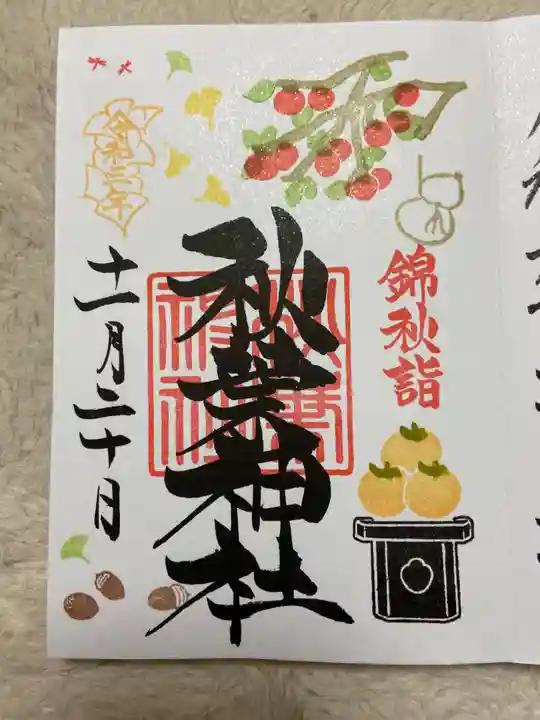 錦秋詣
秋葉神社
秋葉神社
令和三年
十一月二十日